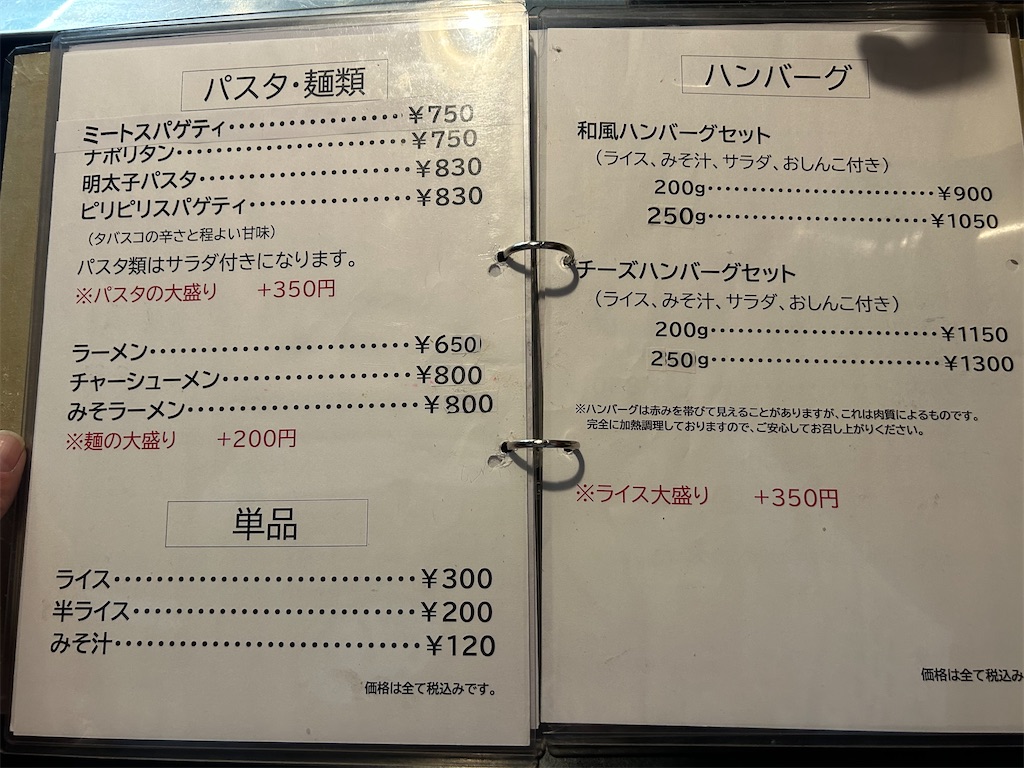 パスタ・麺類
ミートスパゲティ・・・・・・・・・・・・・・・・・・¥750
ナポリタン・・・・・・・・・・・・・・・・・・・・・・・・¥750
明太子パスタ・・・・・・・・・・・・・・・・・・・・・・¥830
ピリピリスパゲティ・・・・・・・・・・・・・・・・・¥830
（タバスコの辛さと程よい甘味）
パスタ類はサラダ付きになります。
※パスタの大盛り　+350円
ラーメン・・・・・・・・・・・・・・・・・・・・・・・・・・¥650
チャーシューメン・・・・・・・・・・・・・・・・・・・¥800
みそラーメン・・・・・・・・・・・・・・・・・・・・・・¥800
※麺の大盛り　+200円
単品
ライス・・・・・・・・・・・・・・・・・・・・・・・・・・・・¥300
半ライス・・・・・・・・・・・・・・・・・・・・・・・・・・¥200
みそ汁・・・・・・・・・・・・・・・・・・・・・・・・・・・・¥120
価格は全て税込みです。
ハンバーグ
和風ハンバーグセット
（ライス、みそ汁、サラダ、おしんこ付き）
200g・・・・・・・・・・・・・・・・・・・・・・・・・・¥900
250g・・・・・・・・・・・・・・・・・・・・・・・・・・¥1050
チーズハンバーグセット
（ライス、みそ汁、サラダ、おしんこ付き）
200g・・・・・・・・・・・・・・・・・・・・・・・・・・¥1150
250g・・・・・・・・・・・・・・・・・・・・・・・・・・¥1300
※ハンバーグは赤みを帯びて見えることがありますが、これは肉質によるものです。
完全に加熱調理しておりますので、ご安心してお召し上がりください。
※ライス大盛り　+350円
価格は全て税込み